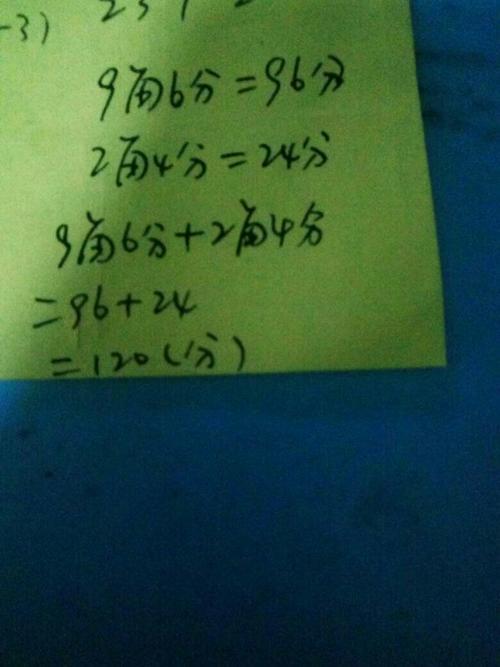 -3)
9角6分=96分
2角4分=24分
9角6分+2角4分
=96+24
=120(分)